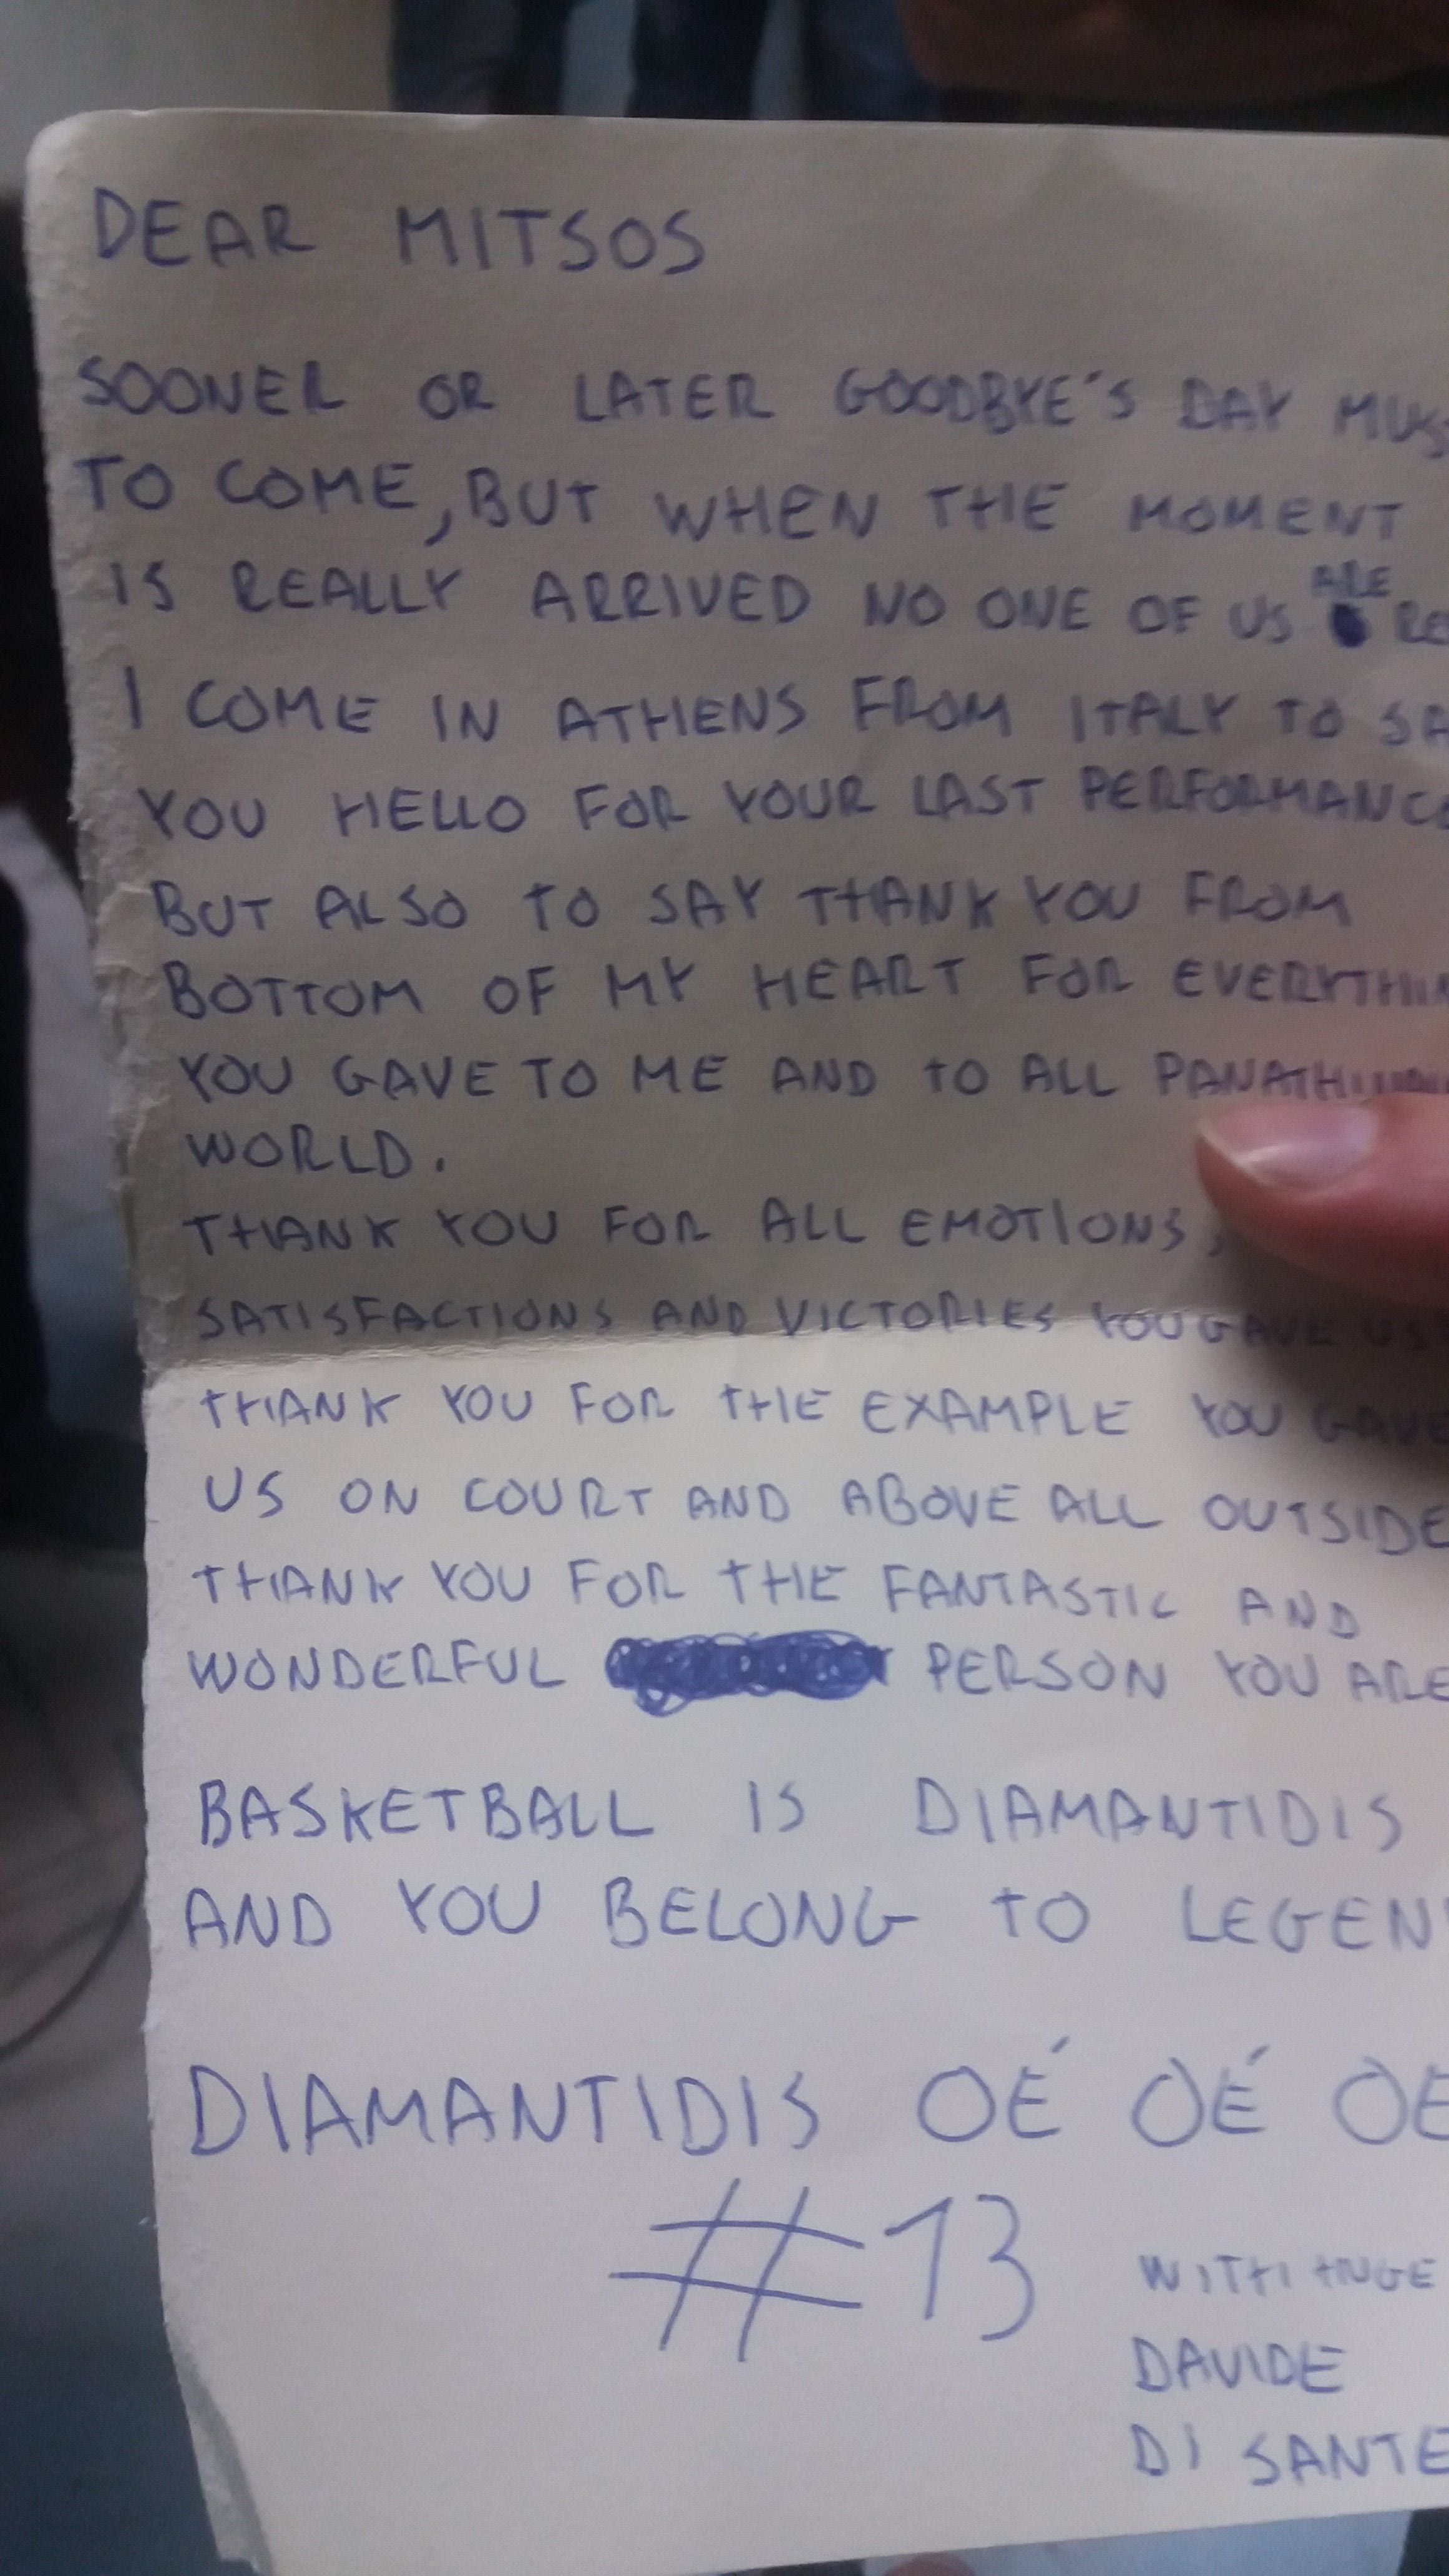 DEAR MITSOS
SOONER OR LATER GOODBYE'S DAY MUS
TO COME, BUT WHEN THE MOMENT
IS REALLY ARRIVED NO ONE OF US ARE RE
I COME IN ATHENS FROM ITALY TO SA
YOU HELLO FOR YOUR LAST PERFORMANCE
BUT ALSO TO SAY THANK YOU FROM
BOTTOM OF MY HEART FOR EVERYTHIN
YOU GAVE TO ME AND TO ALL
WORLD.
THANK YOU FOR ALL EMOTIONS,
SATISFACTIONS AND VICTORIES YOU GAVE US
THANK YOU FOR THE EXAMPLE YOU GAVE
US ON COURT AND ABOVE ALL OUTSIDE
THANK YOU FOR THE FANTASTIC AND
WONDERFUL PERSON YOU ARE
BASKETBALL IS DIAMANTIDIS
AND YOU BELONG TO LEGEN
DIAMANTIDIS OÉ OÉ OE
#13
WITH HUGE
DAVIDE
DI SANTE